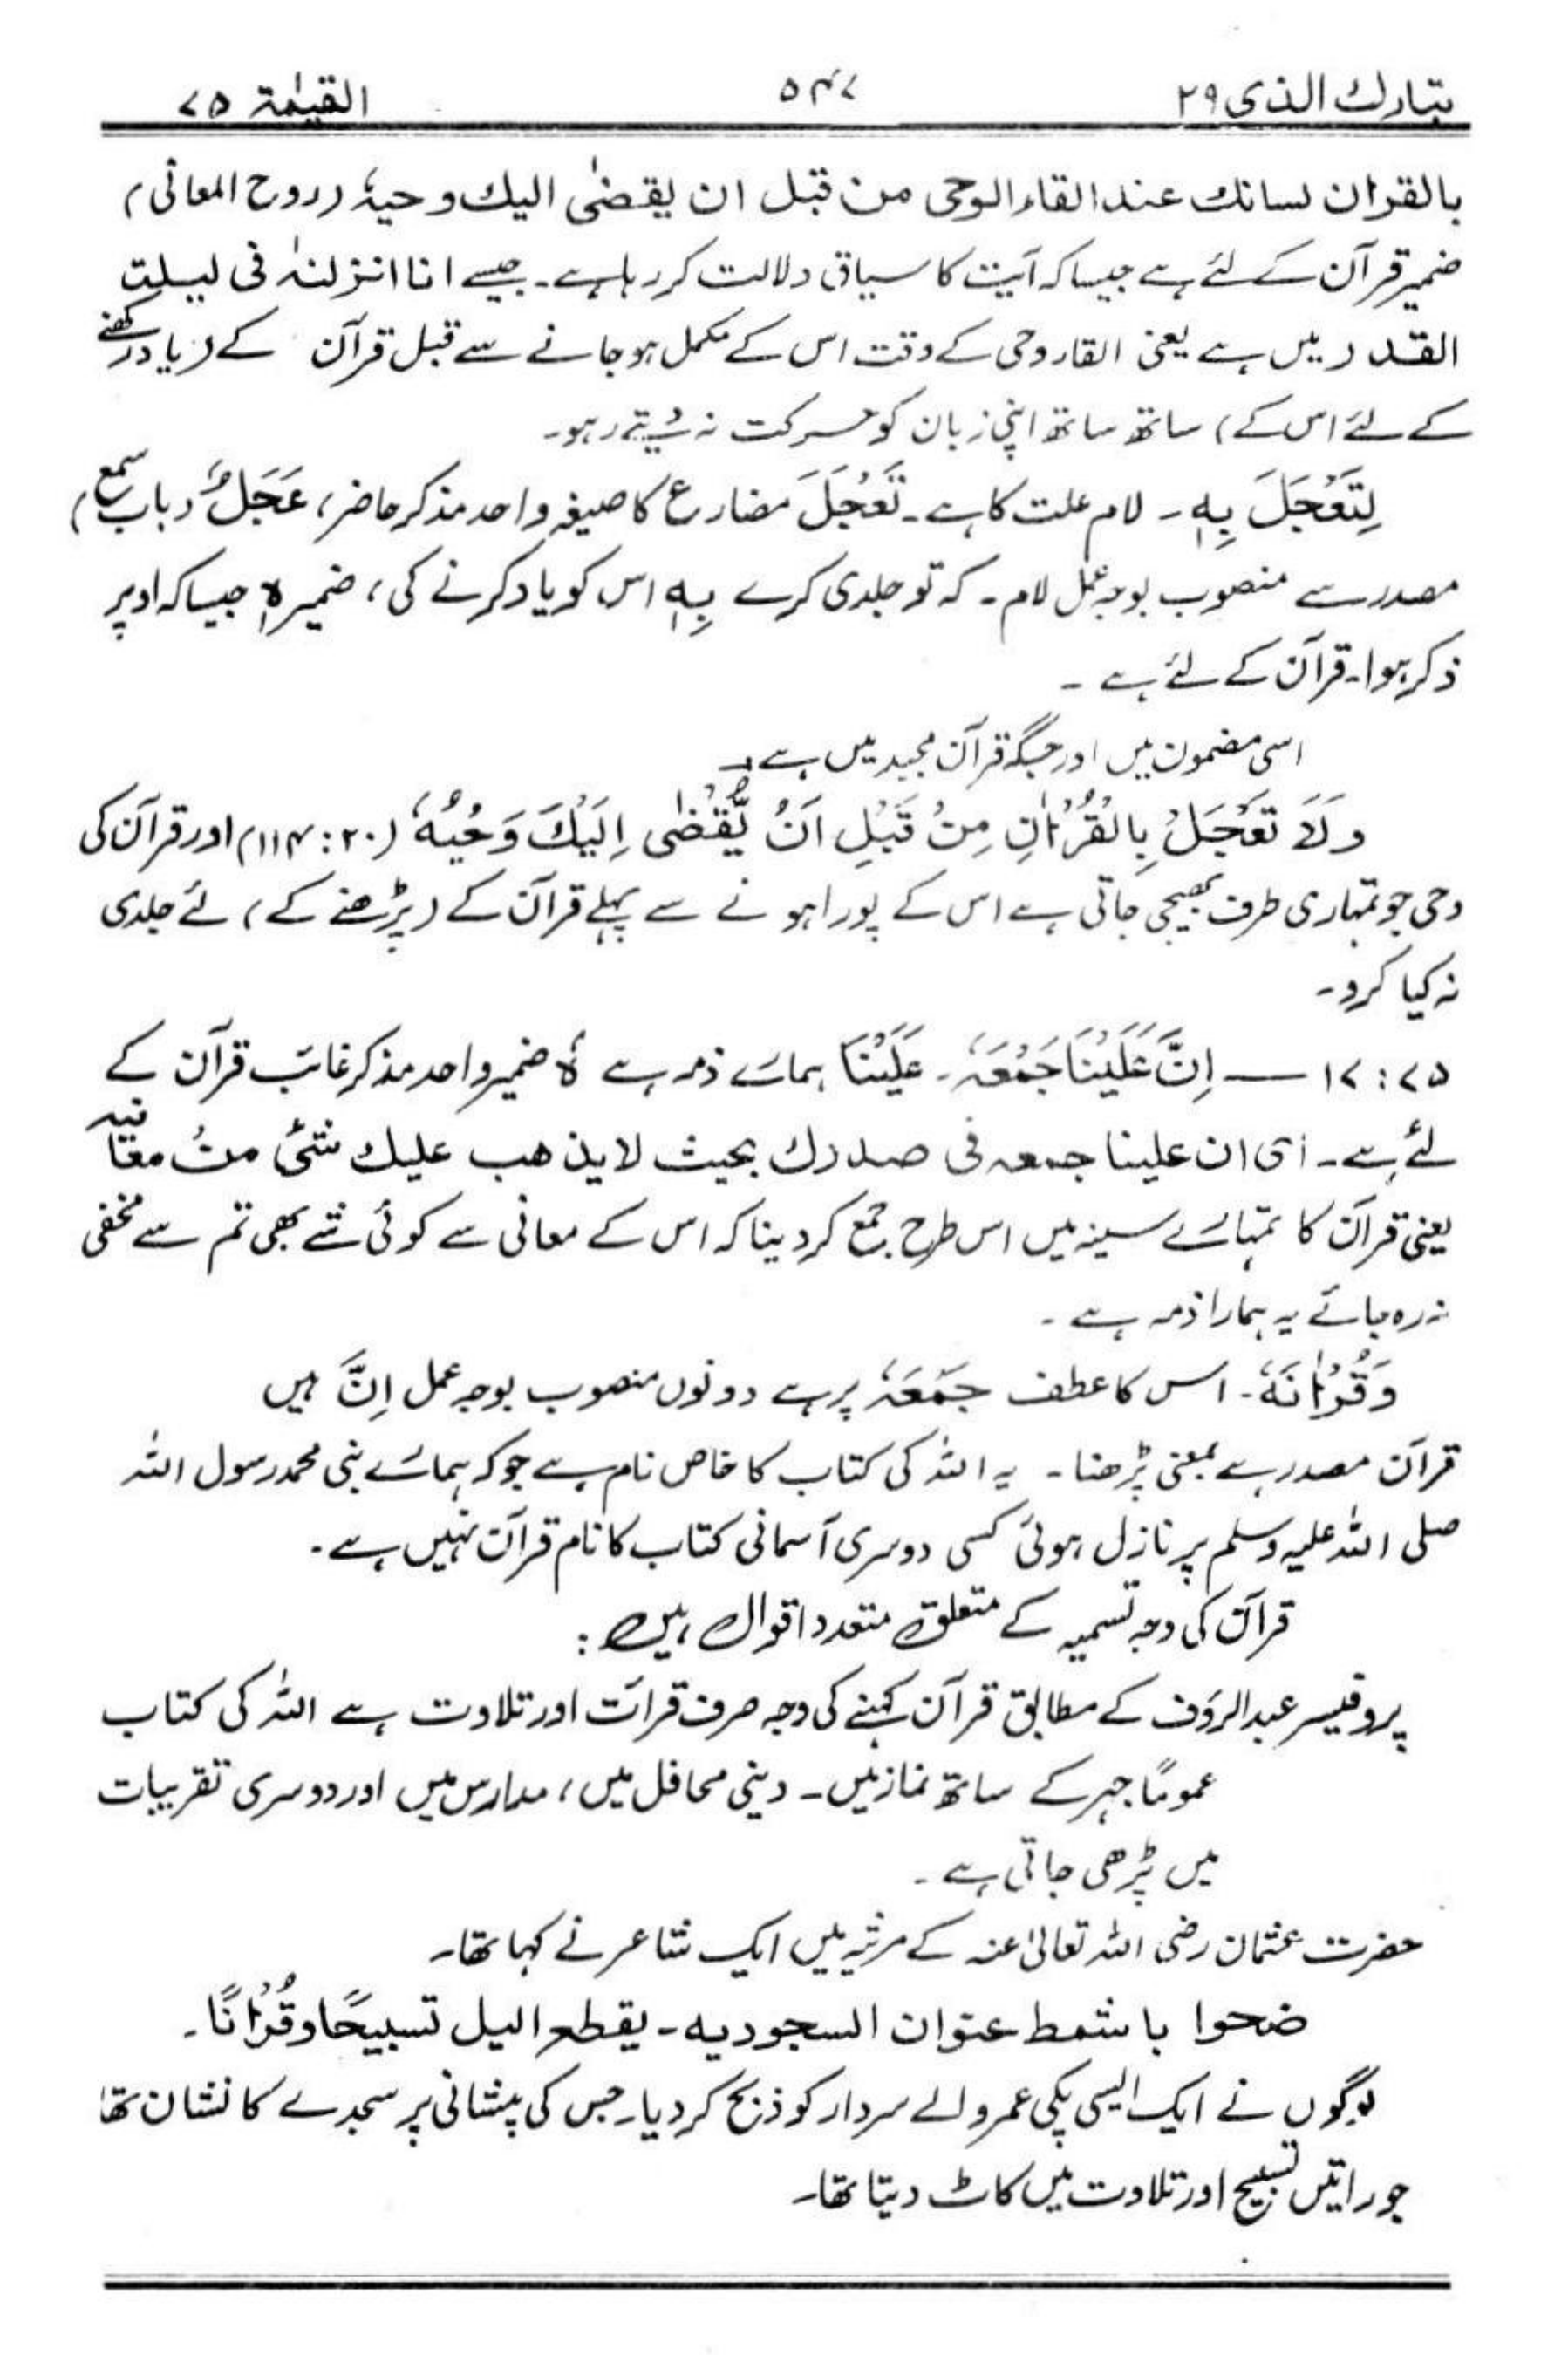 تبارك الذی ۲۹ ۵۴۷ القیٰمۃ ۷۵
بالقراٰن لسانك عند القاء الوحی من قبل ان یقضٰی الیك وحیہٗ (روح المعانی)
ضمیر قرآن کے لئے ہے جیساکہ آیت کا سیاق دلالت کر رہا ہے۔ جیسے انا انزلنٰہ فی لیلۃ
القدر میں ہے یعنی القاء وحی کے وقت اس کے مکمل ہو جانے سے قبل قرآن کے (یاد رکھنے
کے لئے اس کے) ساتھ ساتھ اپنی زبان کو حرکت نہ دیتے رہو۔
لِتَعْجَلَ بِہٖ۔ لام علت کا ہے۔ تَعْجَلَ مضارع کا صیغہ واحد مذکر حاضر، عَجَلٌ (باب سمع)
مصدر سے منصوب بوجہ عمل لام۔ کہ تو جلدی کرے بِہٖ اس کو یاد کرنے کی، ضمیر ہٖ جیساکہ اوپر
ذکر ہوا۔ قرآن کے لئے ہے ۔
اسی مضمون میں اور جگہ قرآن مجید میں ہے:۔
وَلَا تَعْجَلْ بِالْقُرْاٰنِ مِنْ قَبْلِ اَنْ یُّقْضٰی اِلَیْكَ وَحْیُہٗ (۲۰: ۱۱۴) اور قرآن کی
وحی جو تمہاری طرف بھیجی جاتی ہے اس کے پورا ہونے سے پہلے قرآن کے (پڑھنے کے) لئے جلدی
نہ کیا کرو۔
۷۵: ۱۷ — اِنَّ عَلَیْنَا جَمْعَہٗ۔ عَلَیْنَا ہمارے ذمہ ہے ہٗ ضمیر واحد مذکر غائب قرآن کے
لئے ہے۔ ای ان علینا جمعہ فی صدرك بحیث لا یذھب علیك شئ من معانیہ
یعنی قرآن کا تمہارے سینہ میں اس طرح جمع کر دینا کہ اس کے معانی سے کوئی شے بھی تم سے مخفی
نہ رہ جائے یہ ہمارا ذمہ ہے ۔
وَقُرْاٰنَہٗ۔ اس کا عطف جَمْعَہٗ پر ہے دونوں منصوب بوجہ عمل اِنَّ ہیں
قرآن مصدر ہے بمعنی پڑھنا ۔ یہ اللہ کی کتاب کا خاص نام ہے جو کہ ہمارے نبی محمد رسول اللہ
صلی اللہ علیہ وسلم پر نازل ہوئی کسی دوسری آسمانی کتاب کا نام قرآن نہیں ہے۔
قرآن کی وجہ تسمیہ کے متعلق متعدد اقوال ہیں :
پروفیسر عبدالرؤف کے مطابق قرآن کہنے کی وجہ صرف قرأت اور تلاوت ہے اللہ کی کتاب
عمومًا جہر کے ساتھ نماز میں۔ دینی محافل میں، مدارس میں اور دوسری تقریبات
میں پڑھی جاتی ہے ۔
حضرت عثمان رضی اللہ تعالیٰ عنہ کے مرثیہ میں ایک شاعر نے کہا تھا۔
ضحوا باشمط عنوان السجود بہ ۔ یقطع الیل تسبیحًا وقُرْاٰنًا۔
لوگوں نے ایک ایسی پکی عمر والے سردار کو ذبح کر دیا۔ جس کی پیشانی پر سجدے کا نشان تھا
جو راتیں تسبیح اور تلاوت میں کاٹ دیتا تھا۔